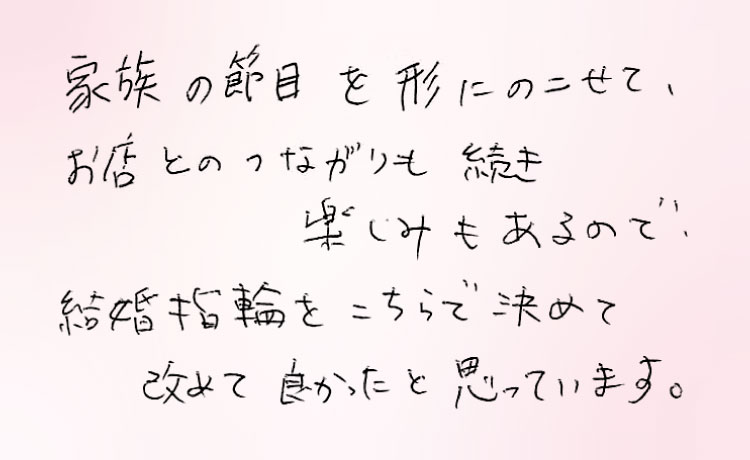 家族の節目を形にのこせて、
お店とのつながりも続き
楽しみもあるので、
結婚指輪をこちらで決めて
改めて良かったと思っています。